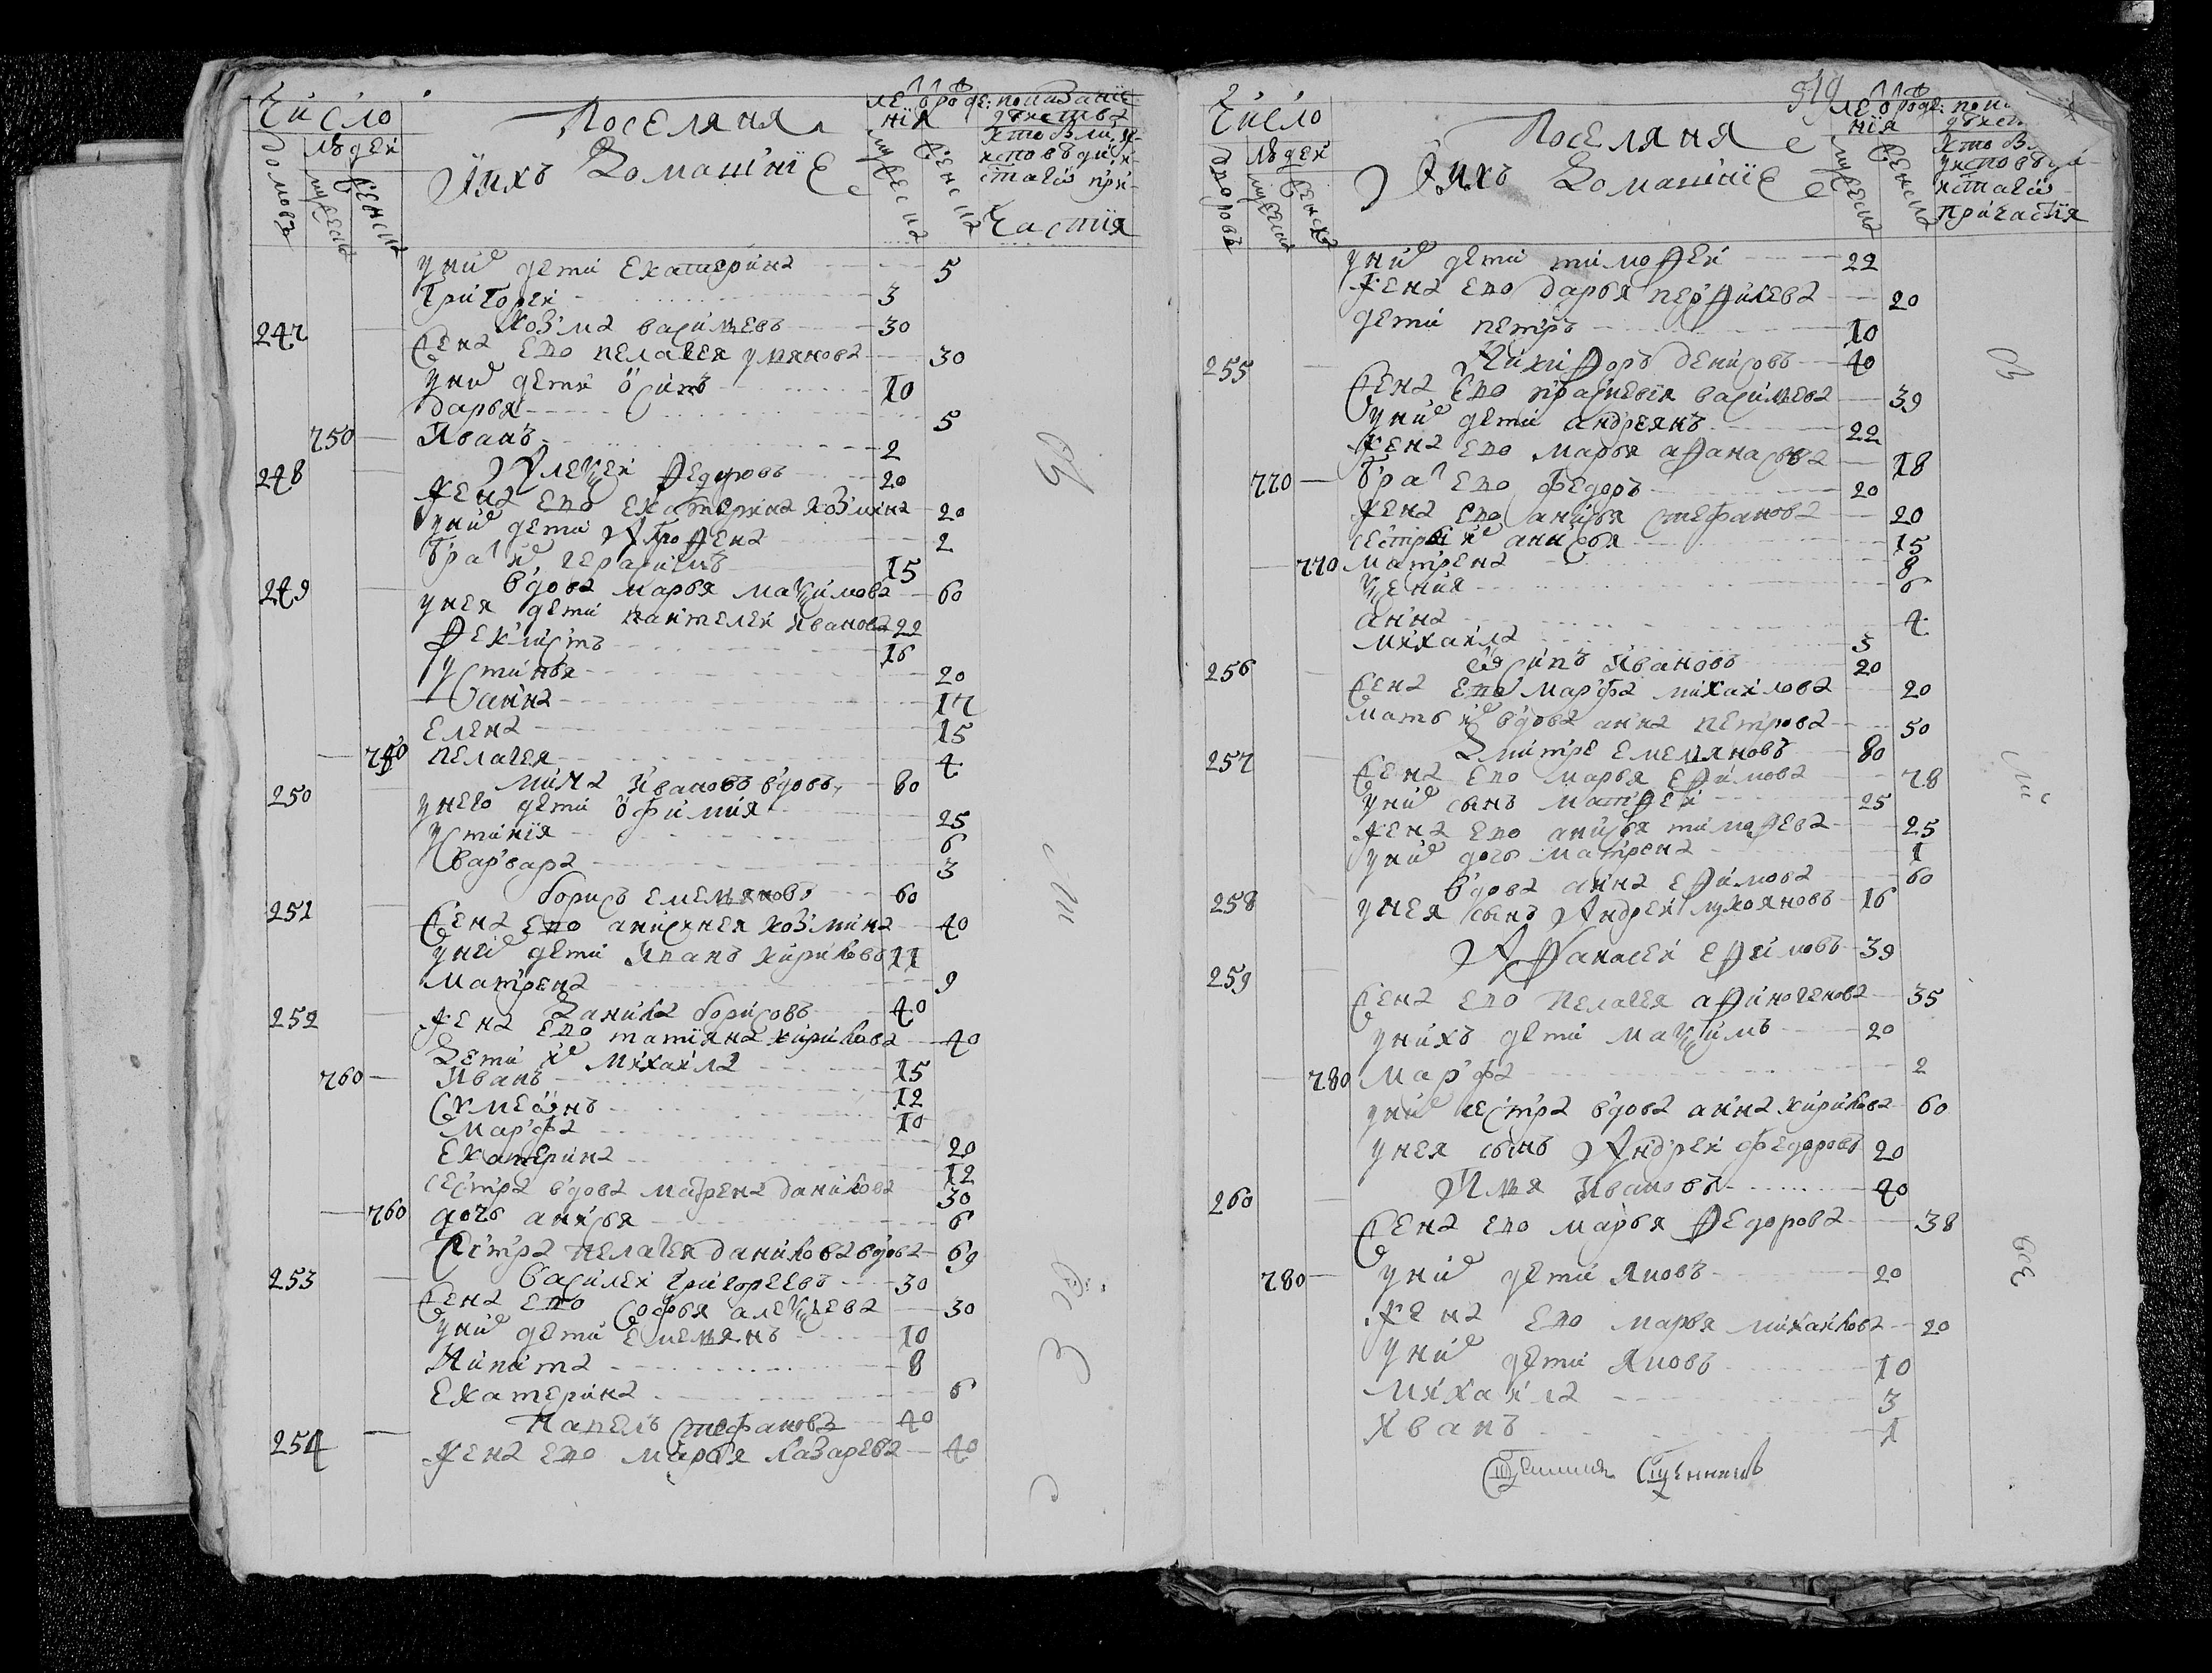 Число
Людей
домовъ
мужеска
женска
Поселяня
Ихъ Домашніе
мужеска
женска
Частія
у них дети Екатерина 5
Григорей 3
247 Козма васильевъ 30
Жена ево пелагея 30
у них дети осипъ 10
дарья 5
750 Иванъ 2
248 Алексей Федоровъ 20
жена ево екатерина козмина 20
у них дети 2
брат их герасимъ 15
249 вдова марья максимова 60
у нея дети пантелей Иванов 22
Феклистъ 16
устинья 20
анна 17
елена 15
750 пелагея 4
250 мина Ивановъ вдовъ 60
у него дети офимия 25
устинія 6
варвара 3
251 борисъ емельяновъ 60
Жена ево козмина 40
у них дети Иванъ кириловъ 11
матрена 9
252 Данила борисовъ 40
жена ево татияна кирилова 40
Дети их михаила 15
760 Иванъ 12
Симеонъ 10
марфа 20
екатерина 12
сестра вдова матрена данилова 30
760 дочь анисья 6
Сестра пелагея данилова вдова 69
253 василей григорьевъ 30
Жена ево софья алексеева 30
у них дети Емельянъ 10
Никита 8
екатерина 6
254 Павелъ стефановъ 40
жена ево марья лазарева 40
519
Число
Людей
дворовъ
мужеска
женска
Поселяня
Ихъ Домашніе
мужеска
женска
причастія
у них дети тимофей 22
жена ево дарья 20
дети петръ 10
255 Никифоръ денисовъ 40
Жена ево васильева 39
у них дети андреянъ 22
жена ево марья афанасьева 18
770 брат ево федоръ 20
жена ево анисья стефанова 20
сестры их анисья 15
770 матрена 8
ксения 6
анна 4
михаила 3
256 осипъ Ивановъ 20
жена ево марфа михаилова 20
мать их вдова анна петрова 50
257 Дмитре емельяновъ 80
жена ево марья ефимова 78
у них сынъ матфей 25
жена ево анисья тимофева 25
у них дочь матрена 1
258 вдова анна ефимова 60
у нея сынъ Андрей лукояновъ 16
259 Афанасей ефимовъ 39
Жена ево пелагея афиногенова 35
у нихъ дети максимъ 20
780 марфа 2
у них сестра вдова анна кирилова 60
у нея сынъ Андрей федоровъ 20
260 Илья Ивановъ 40
Жена ево марья Федорова 38
780 у них дети яковъ 20
жена ево марья михаилова 20
у них дети яковъ 10
михаила 3
Иванъ 1